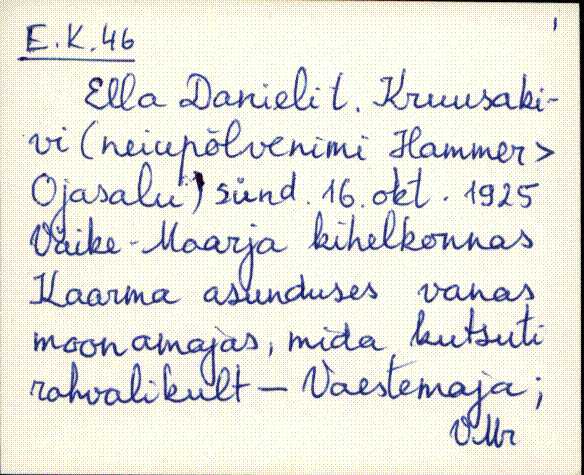 E.K.46
Ella Danieli t. Kruusaki-
vi (neiupõlvenimi Hammer >
Ojasalu) sünd. 16. okt. 1925
Väike-Maarja kihelkonnas
Kaarma asunduses vanas
moonamajas, mida kutsuti
rahvalikult — Vaestemaja;
VMr